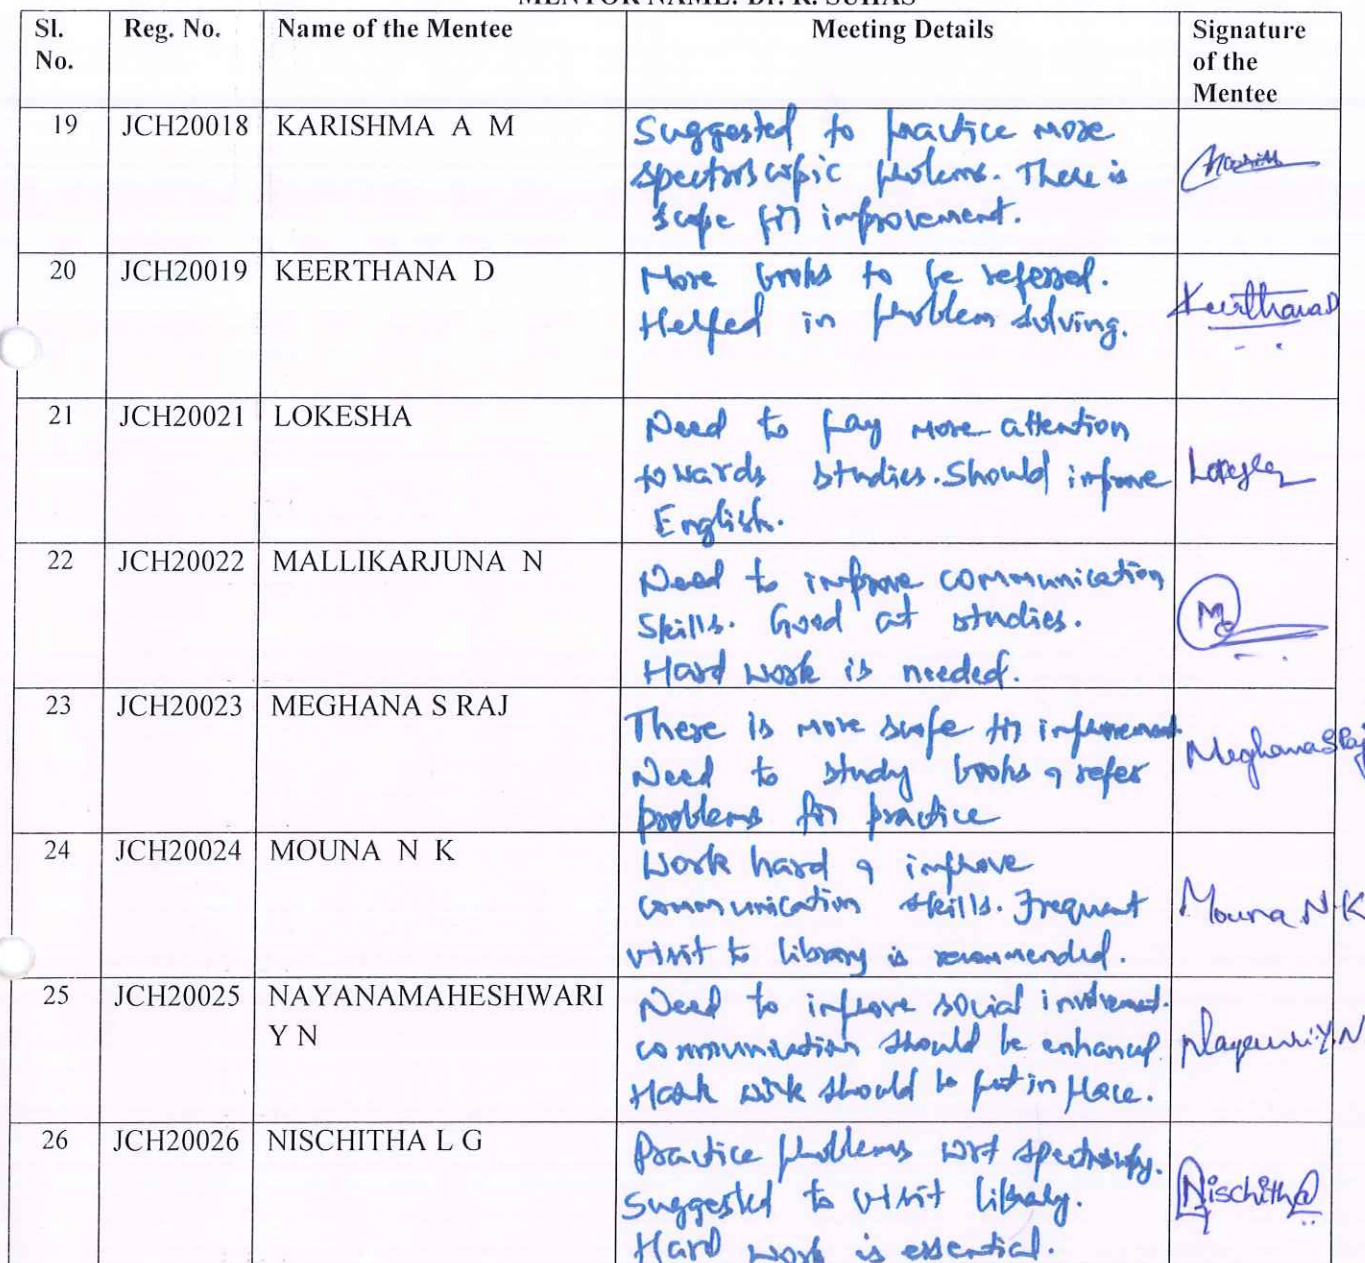 MENTOR NAME: Dr. R. SUHAS
Sl. No. Reg. No. Name of the Mentee Meeting Details Signature of the Mentee
19 JCH20018 KARISHMA A M
Suggested to practice more
spectroscopic prolems. There is
scope for improvement.
20 JCH20019 KEERTHANA D
More books to be referred.
Helped in problem solving.
Keerthana D
21 JCH20021 LOKESHA
Need to pay more attention
towards studies. Should improve
English.
22 JCH20022 MALLIKARJUNA N
Need to improve communication
skills. Good at studies.
Hard work is needed.
23 JCH20023 MEGHANA S RAJ
There is more scope for improvement
Need to study books & refer
problems for practice
Meghana S Raj
24 JCH20024 MOUNA N K
Work hard & improve
communication skills. Frequent
visit to library is recommended.
Mouna N K
25 JCH20025 NAYANAMAHESHWARI
Y N
Need to improve social involvement.
communication should be enhanced.
Hark work should be put in place.
26 JCH20026 NISCHITHA L G
Practice problems wrt spectroscopy.
Suggested to visit library.
Hard work is essential.
Nischitha